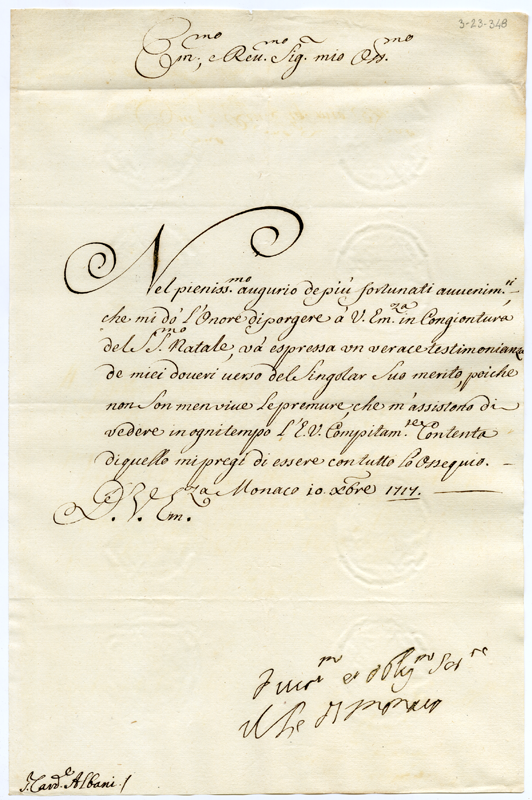 3-23-348
Em.mo, e Reu.mo Sig. mio Oss.mo
Nel pieniss.mo augurio de più fortunati auuenim.ti
che mi dà l'Onore di porgere à V. Em.za in Congiontura
del S.S.mo Natale, và espressa vn verace testimonianza
de miei doueri uerso del Singolar Suo merito, poiche
non Son men viue le premure, che m'assistono di
vedere in ogni tempo l'E.V. Compitam.te Contenta
di quello mi pregi di essere con tutto lo Ossequio.
D. V. Em.za Monaco 10. Xbre 1717.
et obblig.mo Ser.re
di Monaco
S. Card.e Albani